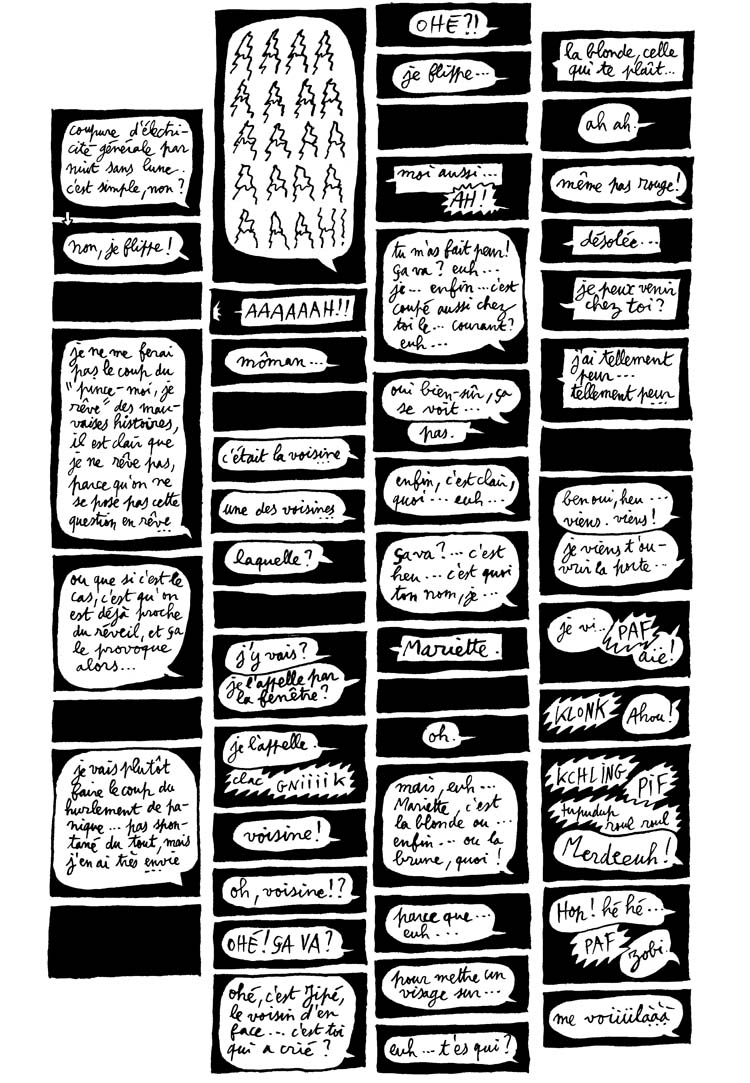 coupure d'électri-
cité générale par
nuit sans lune.
c'est simple, non ?
non, je flippe !
je ne me ferai
pas le coup du
"pince-moi, je
rêve" des mau-
vaises histoires,
il est clair que
je ne rêve pas,
parce qu'on ne
se pose pas cette
question en rêve...
ou que si c'est le
cas, c'est qu'on
est déjà proche
du réveil, et ça
le provoque
alors...
je vais plutôt
faire le coup du
hurlement de pa-
nique... pas spon-
tané du tout, mais
j'en ai très envie
A A A A
A A A A
A A A A
A A A A
A A A !!!
AAAAAAH!!
môman...
c'était la voisine...
une des voisines
laquelle ?
j'y vais ?
je l'appelle par
la fenêtre ?
je l'appelle.
clac GNiiiiK
voisine !
oh, voisine !?
OHÉ! ÇA VA ?
ohé, c'est Jipé,
le voisin d'en
face... c'est toi
qui a crié ?
OHÉ ?!
je flippe...
moi aussi...
AH !
tu m'as fait peur!
ça va ? euh...
je... enfin... c'est
coupé aussi chez
toi le... courant ?
euh...
oui bien-sûr, ça
se voit...
pas.
enfin, c'est clair,
quoi... euh...
ça va ?... c'est
heu... c'est quoi
ton nom, je...
Mariette.
oh.
mais, euh...
Mariette, c'est
la blonde ou...
enfin... ou la
brune, quoi !
parce que...
euh...
pour mettre un
visage sur...
euh... t'es qui ?
la blonde, celle
qui te plaît...
ah ah.
même pas rouge!
désolée...
je peux venir
chez toi ?
j'ai tellement
peur...
tellement peur...
ben oui, heu...
viens. viens !
je viens t'ou-
vrir la porte...
je vi...
PAF
aïe!
KLONK
Ahou!
KCHLING
PiF
tupudup
roul roul
Merdeeuh!
Hop! hé hé...
PAF
zobi.
me voiiiilààà